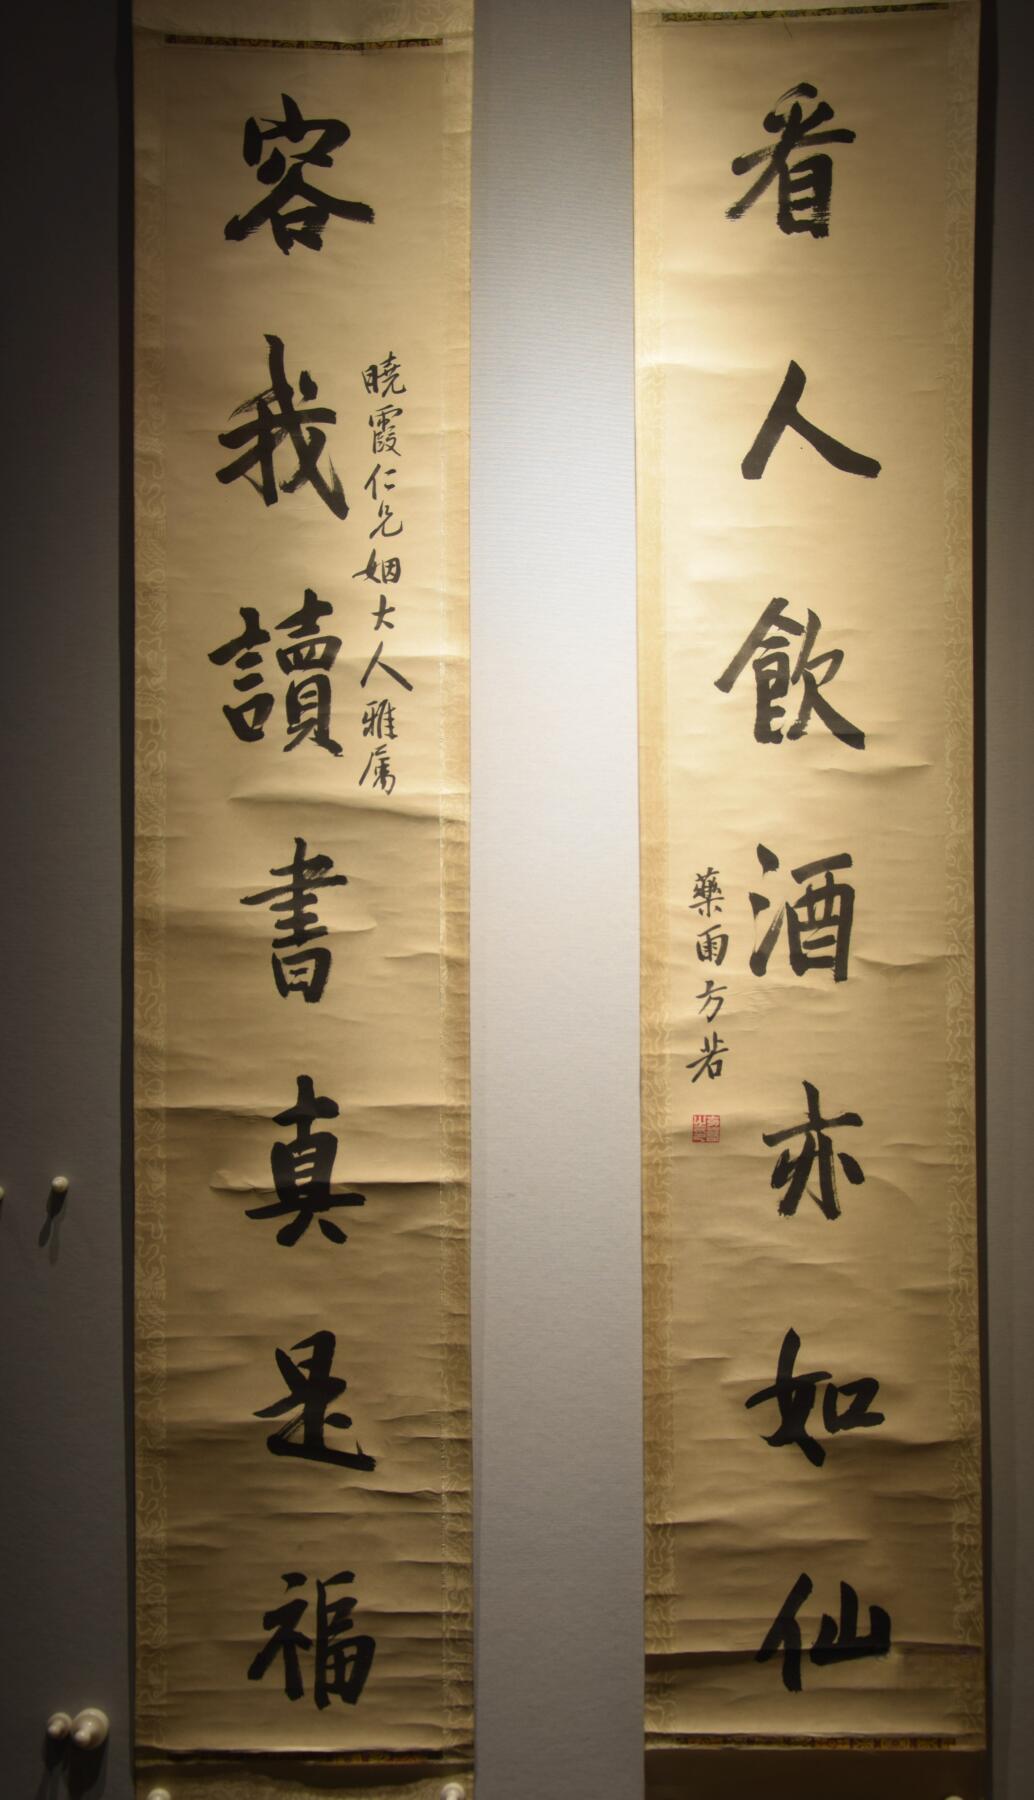 看人飲酒亦如仙
藥雨方若
容我讀書真是福
曉霞仁兄姻大人雅属